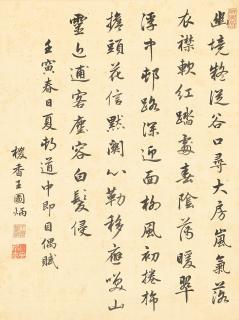 幽境驅從谷口尋大房嵐氣落
衣襟軟紅踏處春陰薄暖翠
浮中邨路深迎面柳風初捲旆
擔頭花信默關心勒移應笑山
靈近逋客塵容白髮侵
壬寅春日夏邨道中即目偶賦
棱香王圖炳